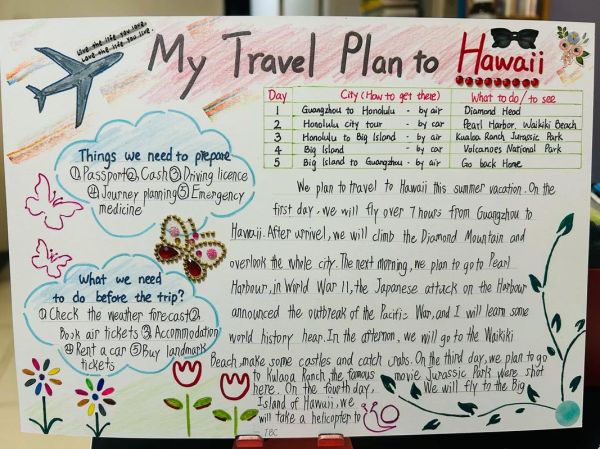 Live the life you love.
Love the life you live.
My Travel Plan to Hawaii
Day City (How to get there) What to do / to see
1 Guangzhou to Honolulu - by air Diamond Head
2 Honolulu city tour - by car Pearl Harbor, Waikiki Beach
3 Honolulu to Big Island - by air Kualoa Ranch Jurassic Park
4 Big Island - by car Volcanoes National Park
5 Big Island to Guangzhou - by air Go back Home
Things we need to prepare
①Passport②Cash③Driving licence
④Journey planning⑤Emergency
medicine
What we need
to do before the trip?
①Check the weather forecast②
Book air tickets③Accommodation
④Rent a car⑤Buy landmark
tickets
We plan to travel to Hawaii this summer vacation. On the
first day, we will fly over 7 hours from Guangzhou to
Hawaii. After urrivel, we will climb the Diamond Mountain and
overlook the whole city. The next morning, we plan to go to Pearl
Harbour, in World War 11, the Japanese attack on the Harbour
announced the outbreak of the Pacific War, and I will learn some
world history hear. In the afternoon, we will go to the Waikiki
Beach, make some castles and catch crabs. On the third day, we plan to go
to Kulaoa Ranch, the famous movie Jurassic Park were shot
here. On the fourth day, We will fly to the Big
Island of Hawaii, we
will take a helicopter to
TBC